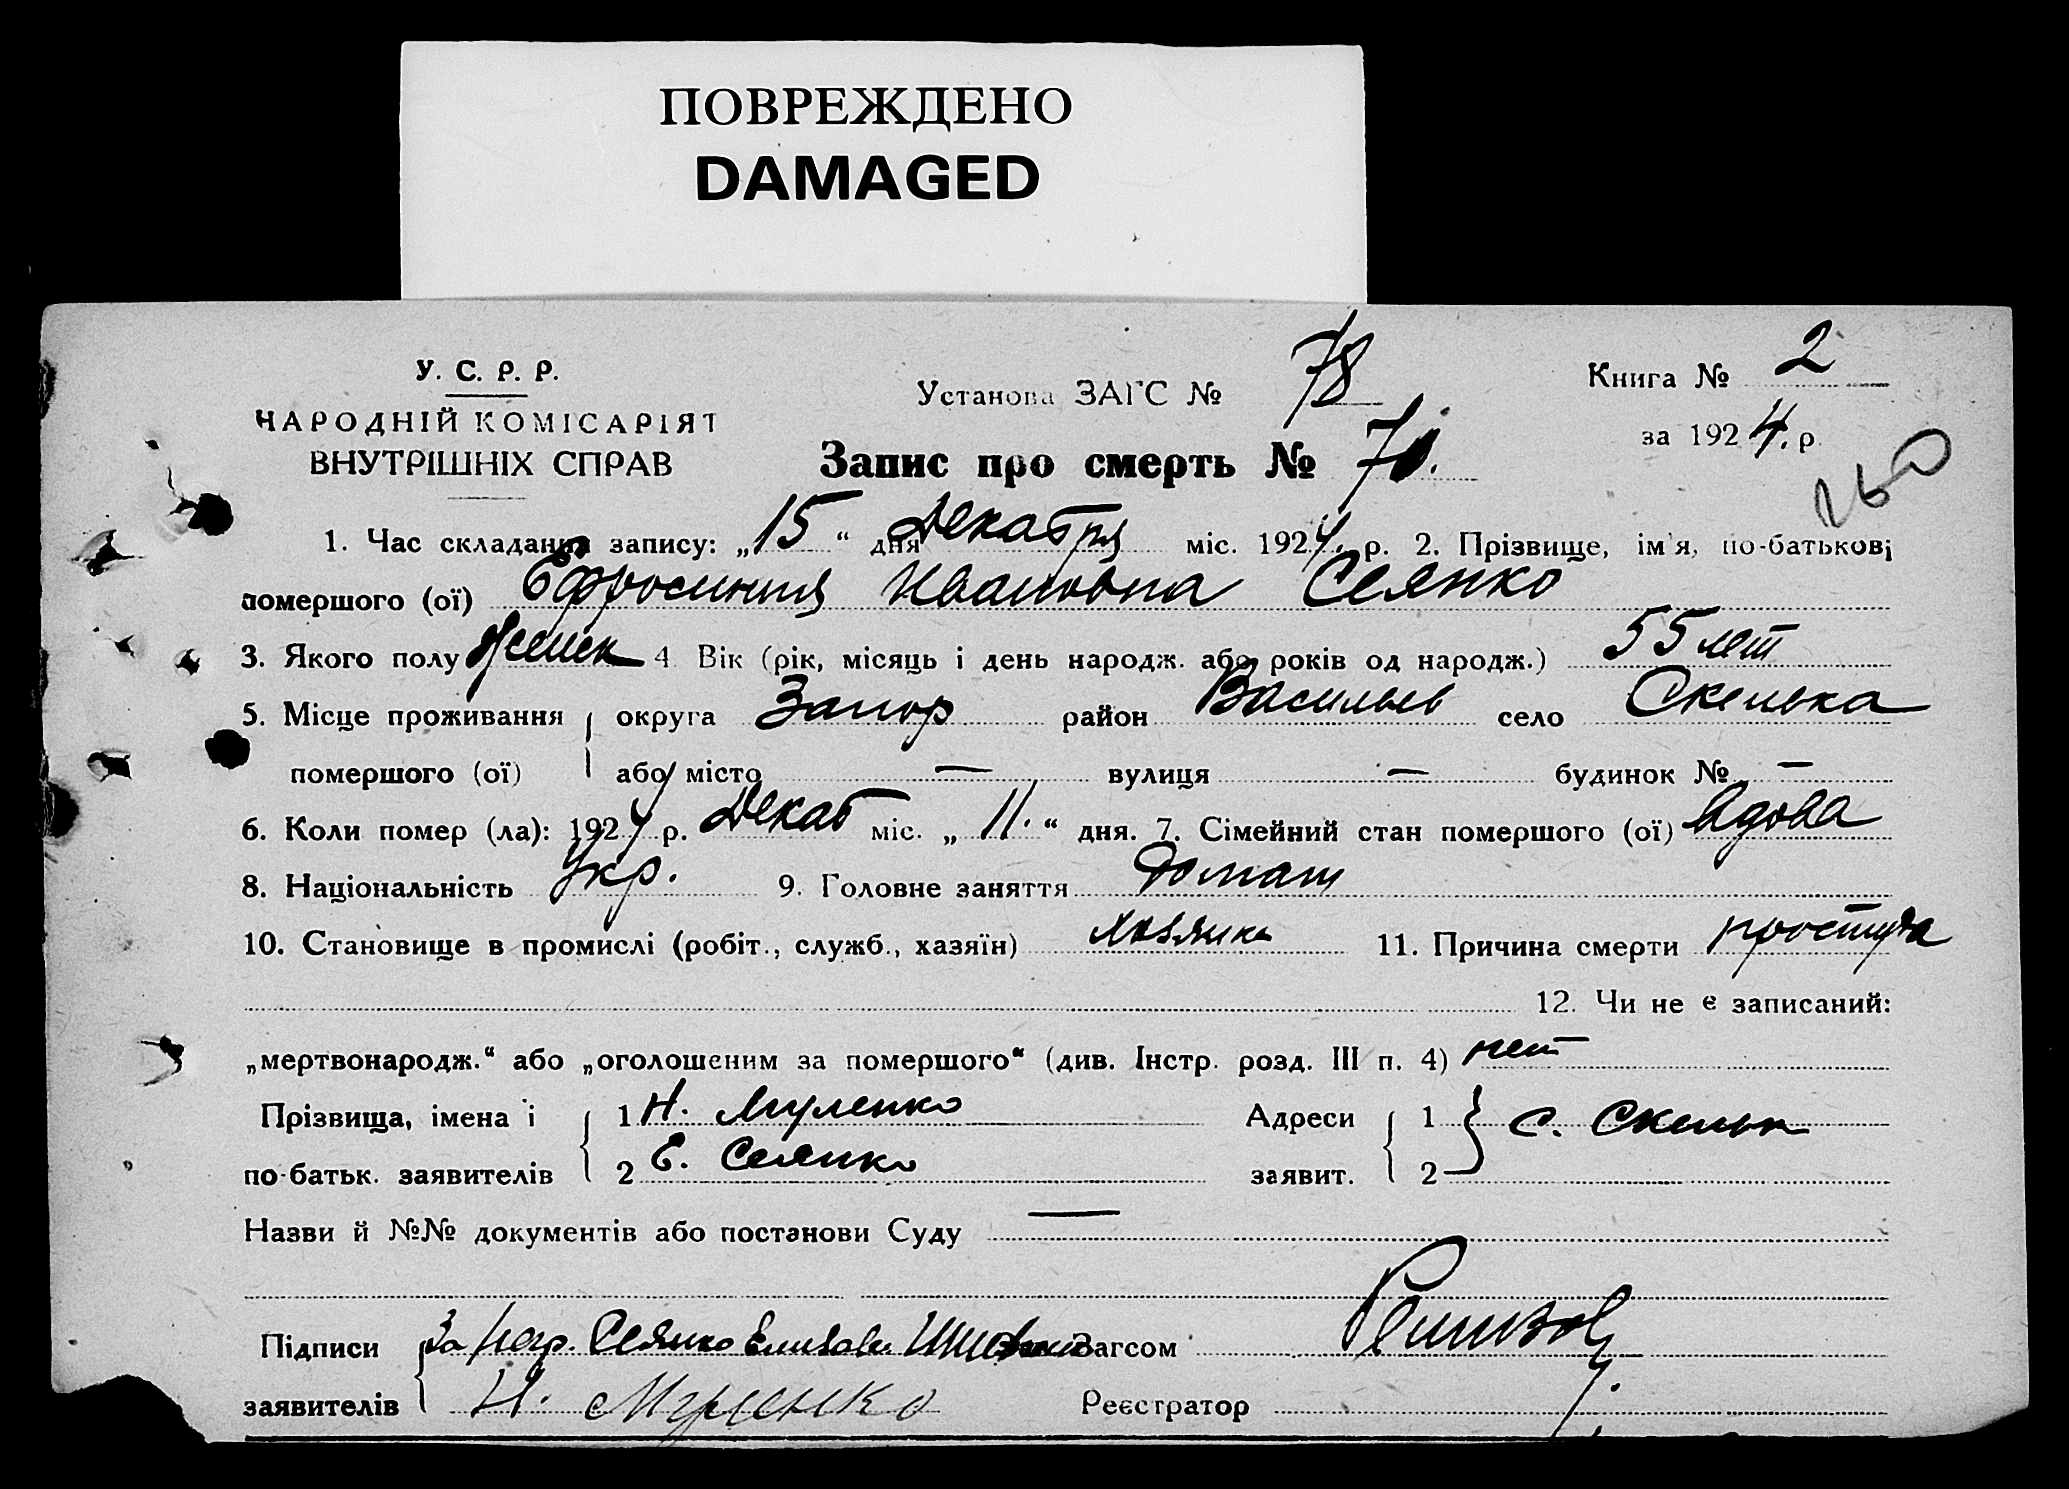 ПОВРЕЖДЕНО
DAMAGED
У. С. Р. Р.
НАРОДНІЙ КОМІСАРІЯТ
ВНУТРІШНІХ СПРАВ
Установа ЗАГС № 78
Запис про смерть № 70.
Книга № 2
за 1924. р.
260
1. Час складання запису: „15“ дня Декабря міс. 1924. р. 2. Прізвище, ім'я, по-батькові
помершого (ої) Ефросиния Ивановна Сеянко
3. Якого полу женск 4. Вік (рік, місяць і день народж. або років од народж.) 55 лет
5. Місце проживання округа Запор район Васильев село Скелька
помершого (ої) або місто — вулиця — будинок № —
6. Коли помер (ла): 1924 р. Декаб міс. „11.“ дня. 7. Сімейний стан помершого (ої) вдова
8. Національність Укр. 9. Головне заняття домаш
10. Становище в промислі (робіт., служб., хазяїн) хозяика 11. Причина смерти простуда
12. Чи не є записаний:
„мертвонародж.“ або „оголошеним за помершого“ (див. Інстр. розд. III п. 4) нет
Прізвища, імена і 1 Н. Муленко Адреси 1 с. Скельк
по-батьк. заявителів 2 Е. Сеянко заявит. 2
Назви й №№ документів або постанови Суду —
Підписи За негр. Сеянко Елизав. Загсом
заявителів Н. Муленко Реєстратор